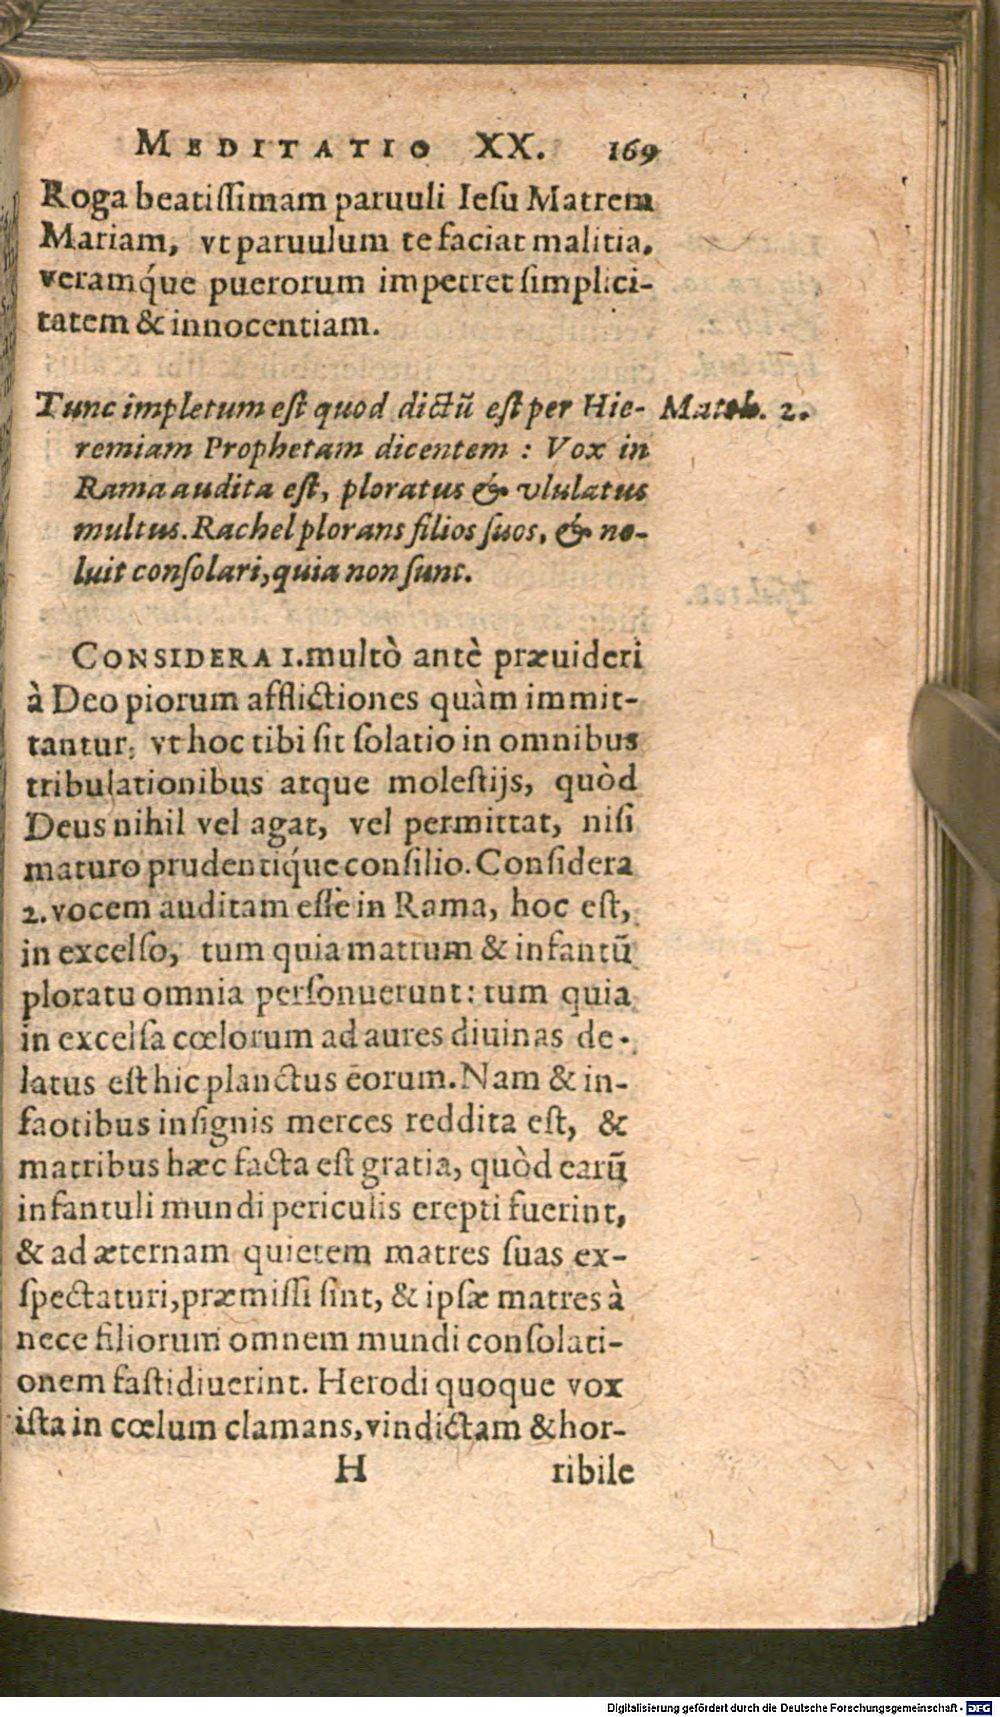 MEDITATIO XX. 169
Roga beatiſſimam paruuli Ieſu Matrem
Mariam, vt paruulum te faciat malitia,
veramq́ue puerorum impetret ſimplici-
tatem & innocentiam.
Tunc impletum eſt quod dictū eſt per Hie- Matth. 2.
remiam Prophetam dicentem : Vox in
Rama audita eſt, ploratus & vlulatus
multus. Rachel plorans filios ſuos, & no-
luit conſolari, quia non ſunt.
CONSIDERA 1. multò antè præuideri
à Deo piorum afflictiones quàm immit-
tantur, vt hoc tibi ſit ſolatio in omnibus
tribulationibus atque moleſtijs, quòd
Deus nihil vel agat, vel permittat, niſi
maturo prudentiq́ue conſilio. Conſidera
2. vocem auditam eſſe in Rama, hoc eſt,
in excelſo, tum quia matrum & infantū
ploratu omnia perſonuerunt: tum quia
in excelſa cœlorum ad aures diuinas de-
latus eſt hic planctus eorum. Nam & in-
faotibus inſignis merces reddita eſt, &
matribus hæc facta eſt gratia, quòd earū
infantuli mundi periculis erepti fuerint,
& ad æternam quietem matres ſuas ex-
ſpectaturi, præmiſſi ſint, & ipſæ matres à
nece filiorum omnem mundi conſolati-
onem faſtidiuerint. Herodi quoque vox
iſta in cœlum clamans, vindictam & hor-
H ribile
Digitalisierung gefördert durch die Deutsche Forschungsgemeinschaft - DFG